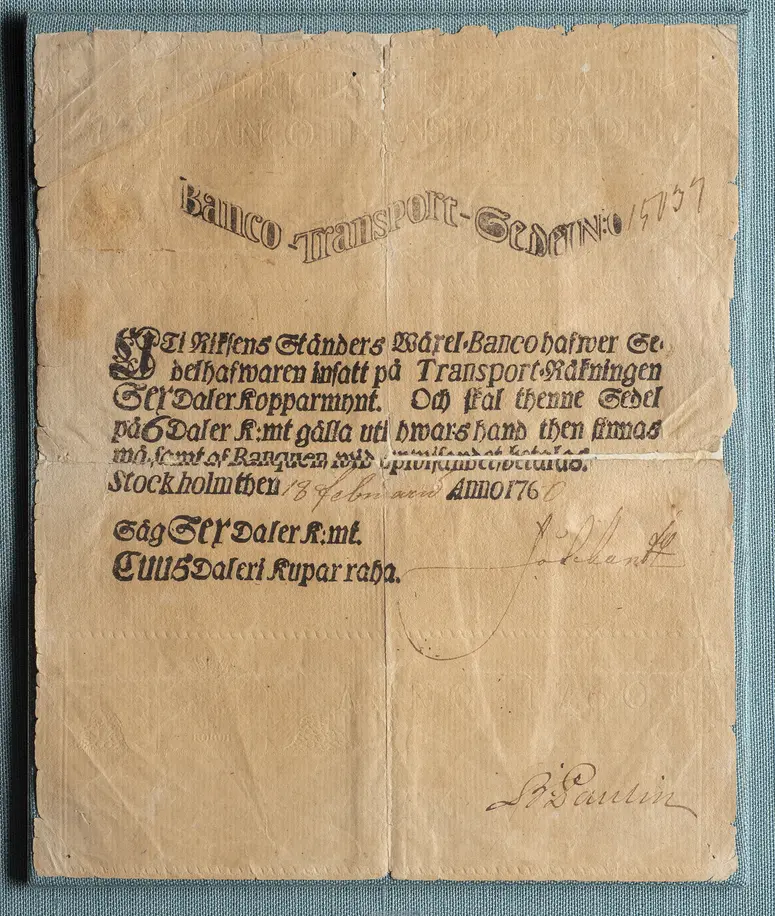 Banco-Transport-Sedel N:o 15037
ATi Riksens Ständers Wäxel-Banco hafwer Se-
delhafwaren insatt på Transport-Räkningen
Sex Daler Kopparmynt. Och skal thenne Sedel
på 6 Daler K:mt gälla uti hwars hand then finnas
må, samt af Banquen wid upwisandet betalas.
Stockholm then 18 februarii Anno 1760
Säg Sex Daler K:mt.
Cuus Daleri Kupar raha.
B Paulin